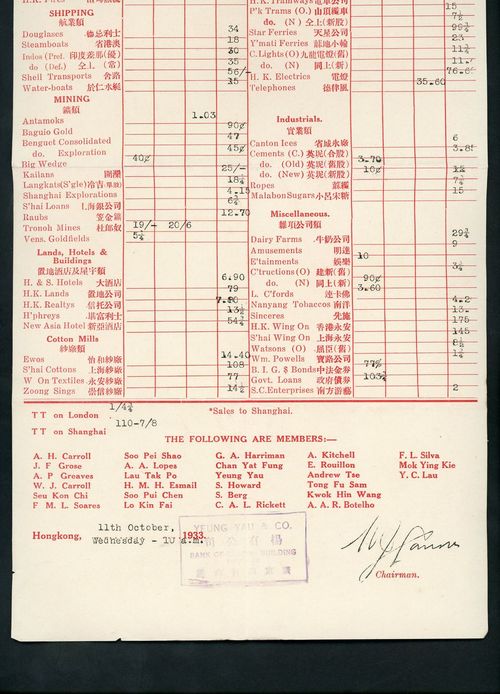 SHIPPING
航業類
Douglases 德忌利士 34
Steamboats 省港澳 18
Indos (Pref.) 印度差那(優) 30
do. (Def.) 仝上 (常) 35
Shell Transports 舎路 56/-
Water-boats 於仁水艇 15
MINING
鑛類
Antamoks 1.03
Baguio Gold 90¢
Benguet Consolidated 47
do. Exploration 45¢
Big Wedge 40¢
Kailans 開灤 25/-
Langkats(S'gle) 冷吉(單股) 18¼
Shanghai Explorations 4.15
S'hai Loans 上海銀公司 6¾
Raubs 笠金鑛 12.70
Tronoh Mines 杜郎奴 19/- 20/6
Vens. Goldfields 5¼
Lands, Hotels &
Buildings
置地酒店及屋宇類
H. & S. Hotels 大酒店 6.90
H.K. Lands 置地公司 79
H.K. Realtys 信托公司
H'phreys 堪富利士 13½
New Asia Hotel 新亞酒店
Cotton Mills
紗廠類
Ewos 怡和紗廠 14.40
S'hai Cottons 上海紗廠 108
W On Textiles 永安紗廠 77
Zoong Sings 崇信紗廠 14½
H.K. Tramways 電車公司 15
P'k Trams (O.) 山頂纜車 7½
do. (N) 仝上(新股)
Star Ferries 天星公司 99¾
Y'mati Ferries 蔴地小輪 23
C.Lights (O) 九龍電燈(舊) 11¾
do. (N) 同上(新)
H. K. Electrics 電燈
Telephones 德律風 35.60
Industrials.
實業類
Canton Ices 省城氷廠 6
Cements (C.) 英坭(合股) 3.70
do. (Old) 英坭(舊股) 10¢
do. (New) 英坭(新股) 12
Ropes 蔴纜 7¼
Malabon Sugars 小呂宋糖 15
Miscellaneous.
雜項公司類
Dairy Farms 牛奶公司 29¾
Amusements 明達 10 9
E'tainments 娛樂 3½
C'tructions (O) 建新(舊) 90¢
do. (N) 同上(新) 3.60
L. C'fords 連卡佛
Nanyang Tobaccos 南洋
Sinceres 先施
H.K. Wing On 香港永安 175
S'hai Wing On 上海永安 145
Watsons (O) 屈臣(舊) 8½
Wm. Powells 實路公司 1¼
B. I. G. $ Bonds 中法金券 77%
Govt. Loans 政府債券 103¾
S.C. Enterprises 南方游藝 2
T T on London 1/4¾
T T on Shanghai 110-7/8
*Sales to Shanghai.
THE FOLLOWING ARE MEMBERS:—
A. H. Carroll Soo Pei Shao G. A. Harriman A. Kitchell F. L. Silva
J. F Grose A. A. Lopes Chan Yat Fung E. Rouillon Mok Ying Kie
A. P Greaves Lau Tak Po Yeung Yau Andrew Tse Y. C. Lau
W. J. Carroll H. M. H. Esmail S. Howard Tong Fu Sam
Seu Kon Chi Soo Pui Chen S. Berg Kwok Hin Wang
F M. L. Soares Lo Kin Fai C. A. L. Rickett A. A. R. Botelho
Hongkong, 11th October, 1933.
Wednesday - 10 a.m.
YEUNG YAU & CO.
BUILDING
Chairman.